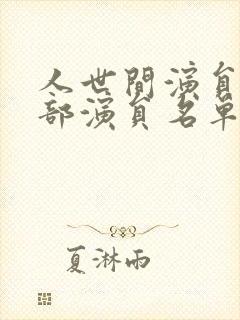 人世間演員
部演員名單
夏淋雨